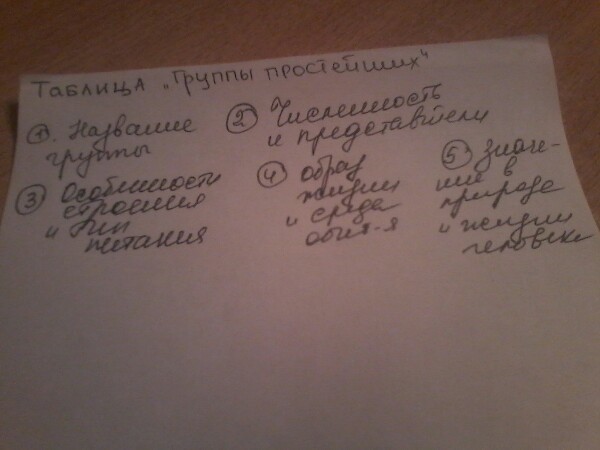 Таблица "Группы простейших"
① Название
группы
② Численность
и представители
③ Особенности
строения
и тип
питания
④ образ
жизни
и среда
обит-я
⑤ Значе-
ние в
природе
и жизни
человека